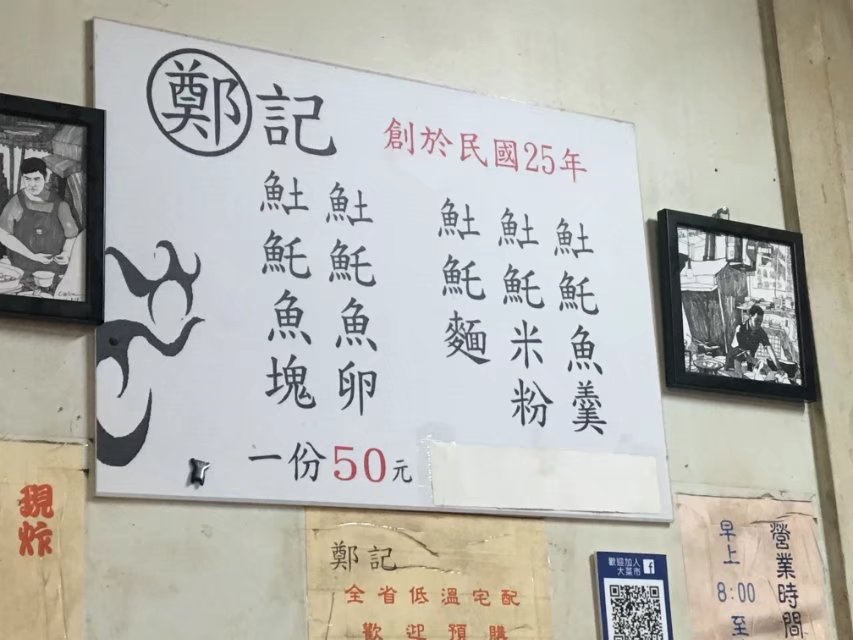 鄭記
創於民國25年
䰾魠魚羹
䰾魠米粉
䰾魠麵
䰾魠魚卵
䰾魠魚塊
一份50元
現炸
鄭記
全省低溫宅配
歡迎預購
歡迎加入
大菜市
f
營業時間
早上
8:00
至